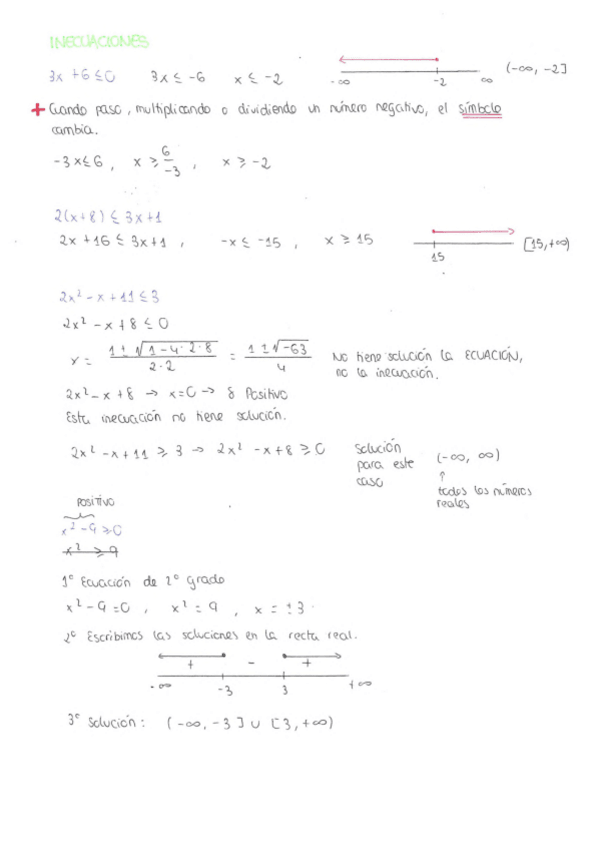 INECUACIONES
3x + 6 ≤ 0 3x ≤ -6 x ≤ -2 -∞ -2 ∞ (-∞, -2]
+ Cuando paso, multiplicando o dividiendo un número negativo, el símbolo
cambia.
-3x ≤ 6, x ≥ 6/-3, x ≥ -2
2(x+8) ≤ 3x+1
2x + 16 ≤ 3x+1, -x ≤ -15, x ≥ 15 15 [15, +∞)
2x² - x + 11 ≤ 3
2x² - x + 8 ≤ 0
x = 1 ± √1 - 4 · 2 · 8 / 2 · 2 = 1 ± √-63 / 4 No tiene solución la ECUACIÓN,
no la inecuación.
2x² - x + 8 → x = 0 → 8 Positivo
Esta inecuación no tiene solución.
2x² - x + 11 ≥ 3 → 2x² - x + 8 ≥ 0 solución
para este
caso
(-∞, ∞)
↑
todos los números
reales
POSITIVO
x² - 9 ≥ 0
x² ≥ 9
1º Ecuación de 2º grado
x² - 9 = 0, x² = 9, x = ±3
2º Escribimos las soluciones en la recta real.
+ - +
-∞ -3 3 +∞
3º Solución: (-∞, -3] ∪ [3, +∞)